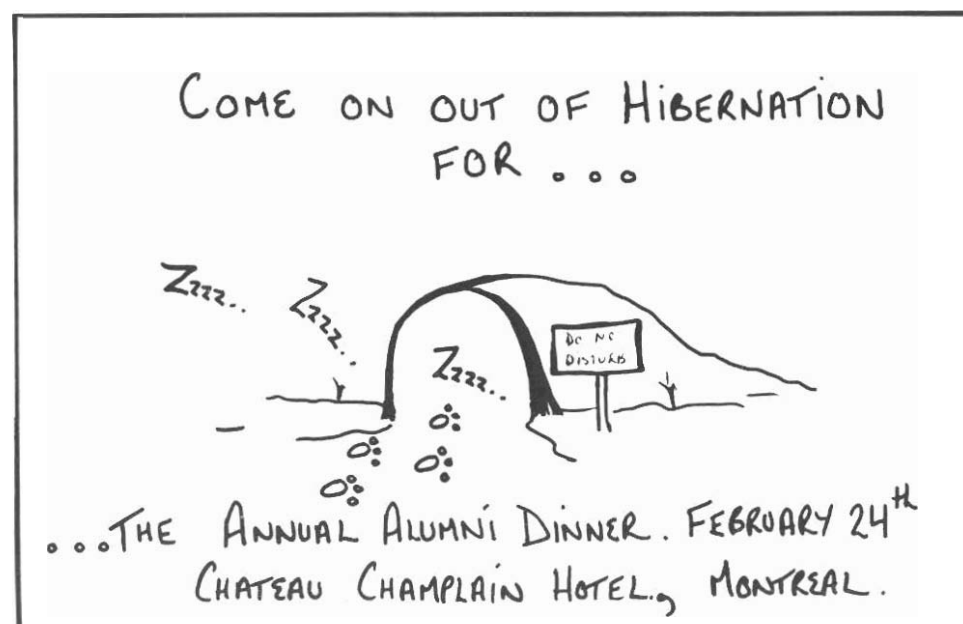 COME ON OUT OF HIBERNATION
FOR ...
Zzzz..
Zzzz..
Zzzz..
DO NO
DISTURB
...THE ANNUAL ALUMNI DINNER. FEBRUARY 24th
CHATEAU CHAMPLAIN HOTEL., MONTREAL.